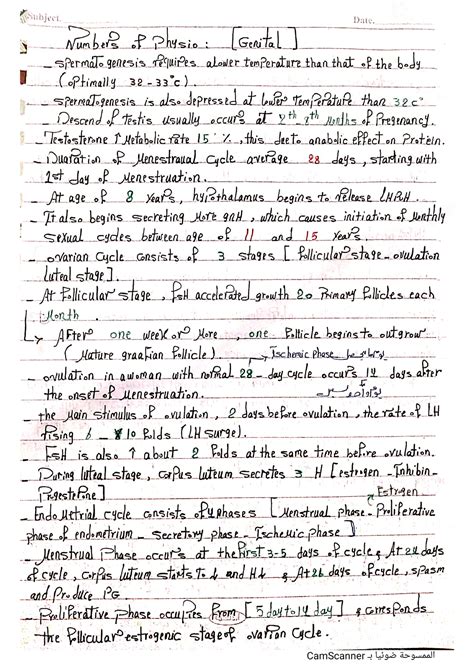 Subject
Date.
Numbers of Physio : [Genital]
_ spermatogenesis requires alower temperature than that of the body
(optimally 32-33°c).
_ spermatogenesis is also depressed at lower temperature than 32c°
_ Descend of testis usually occurs at months of Pregenancy.
_ Testosterone ↑ Metabolic rate 15 %, this due to anabolic effect on Protein.
_ Duaration of Menestraual Cycle average 28 days, starting with
1st day of Menestruation.
_ At age of 8 Years, hypothalamus begins to release
_ It also begins secreting More gnH, which causes initiation of Monthly
sexual cycles between age of 11 and 15 Years.
_ ovarian Cycle consists of 3 stages [follicular stage - ovulation
luteal stage].
_ At follicular stage, FsH accelerated growth 20 Primary follicles each
Month.
↳ After one week or More, one follicle begins to outgrow
(Mature graafian follicle)
Ischemic Phase
_ ovulation in awoman with normal 28-day cycle occurs 14 days after
the onset of Menestruation.
_ the Main stimulus of ovulation, 2 days before ovulation, the rate of LH
rising 6 - 10 folds (LH surge).
_ FsH is also ↑ about 2 folds at the same time before ovulation.
_ During luteal stage, corpus luteum secretes 3 H [estrogen - Inhibin-
Progesterone]
Estrogen
_ Endometrial cycle consists of 4 phases [Menstrual phase - Proliferative
phase of endometrium - secretory phase - Ischemic phase]
_ Menstrual Phase occurs at the first 3-5 days of cycle & At 24 days
of cycle, corpus luteum starts to ↓ and H↓ & At 26 days of cycle, spasm
and Produce PG.
_ Proliferative Phase occupies From [5 day to 14 day] & corresponds
the follicular estrogenic stage of ovarian Cycle.
الممسوحة ضوئيا بـ CamScanner